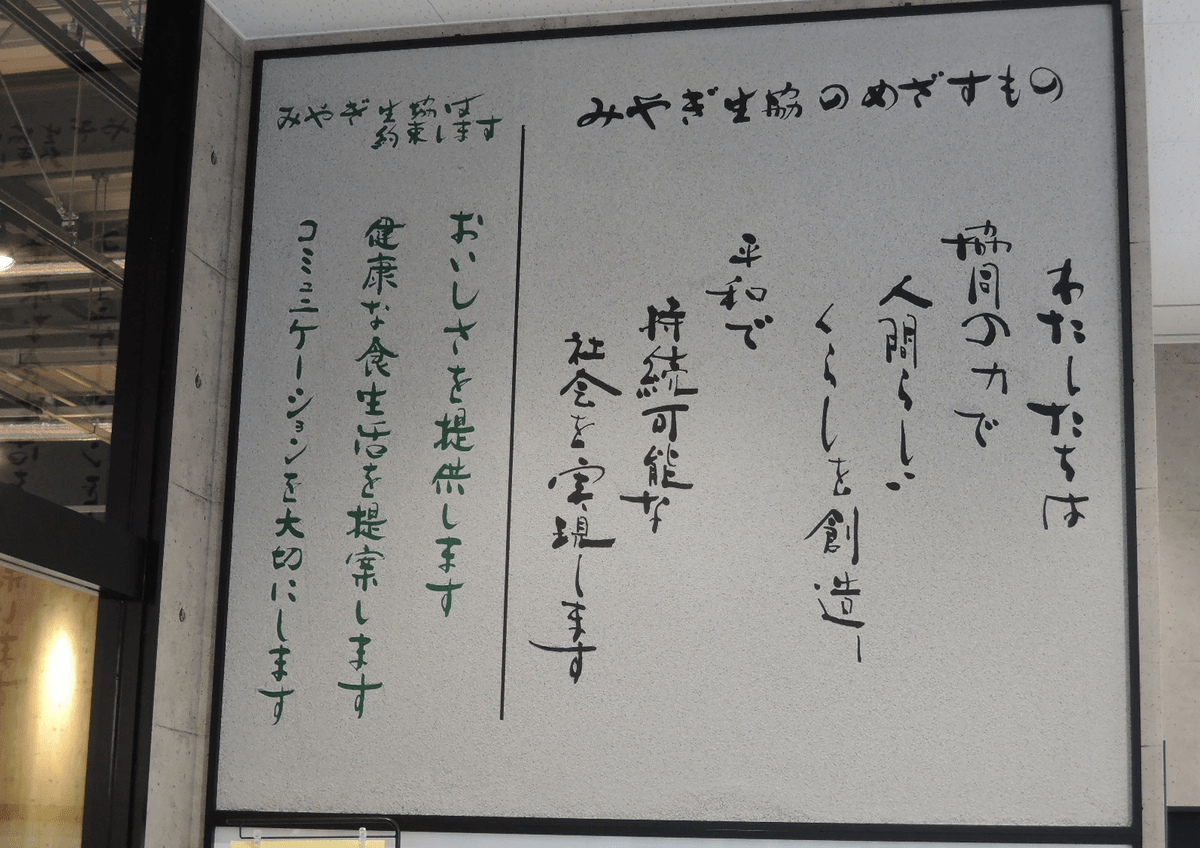 みやぎ生協のめざすもの
わたしたちは
協同の力で
人間らしい
くらしを創造し
平和で
持続可能な
社会を実現します
みやぎ生協は
約束します
おいしさを提供します
健康な食生活を提案します
コミュニケーションを大切にします